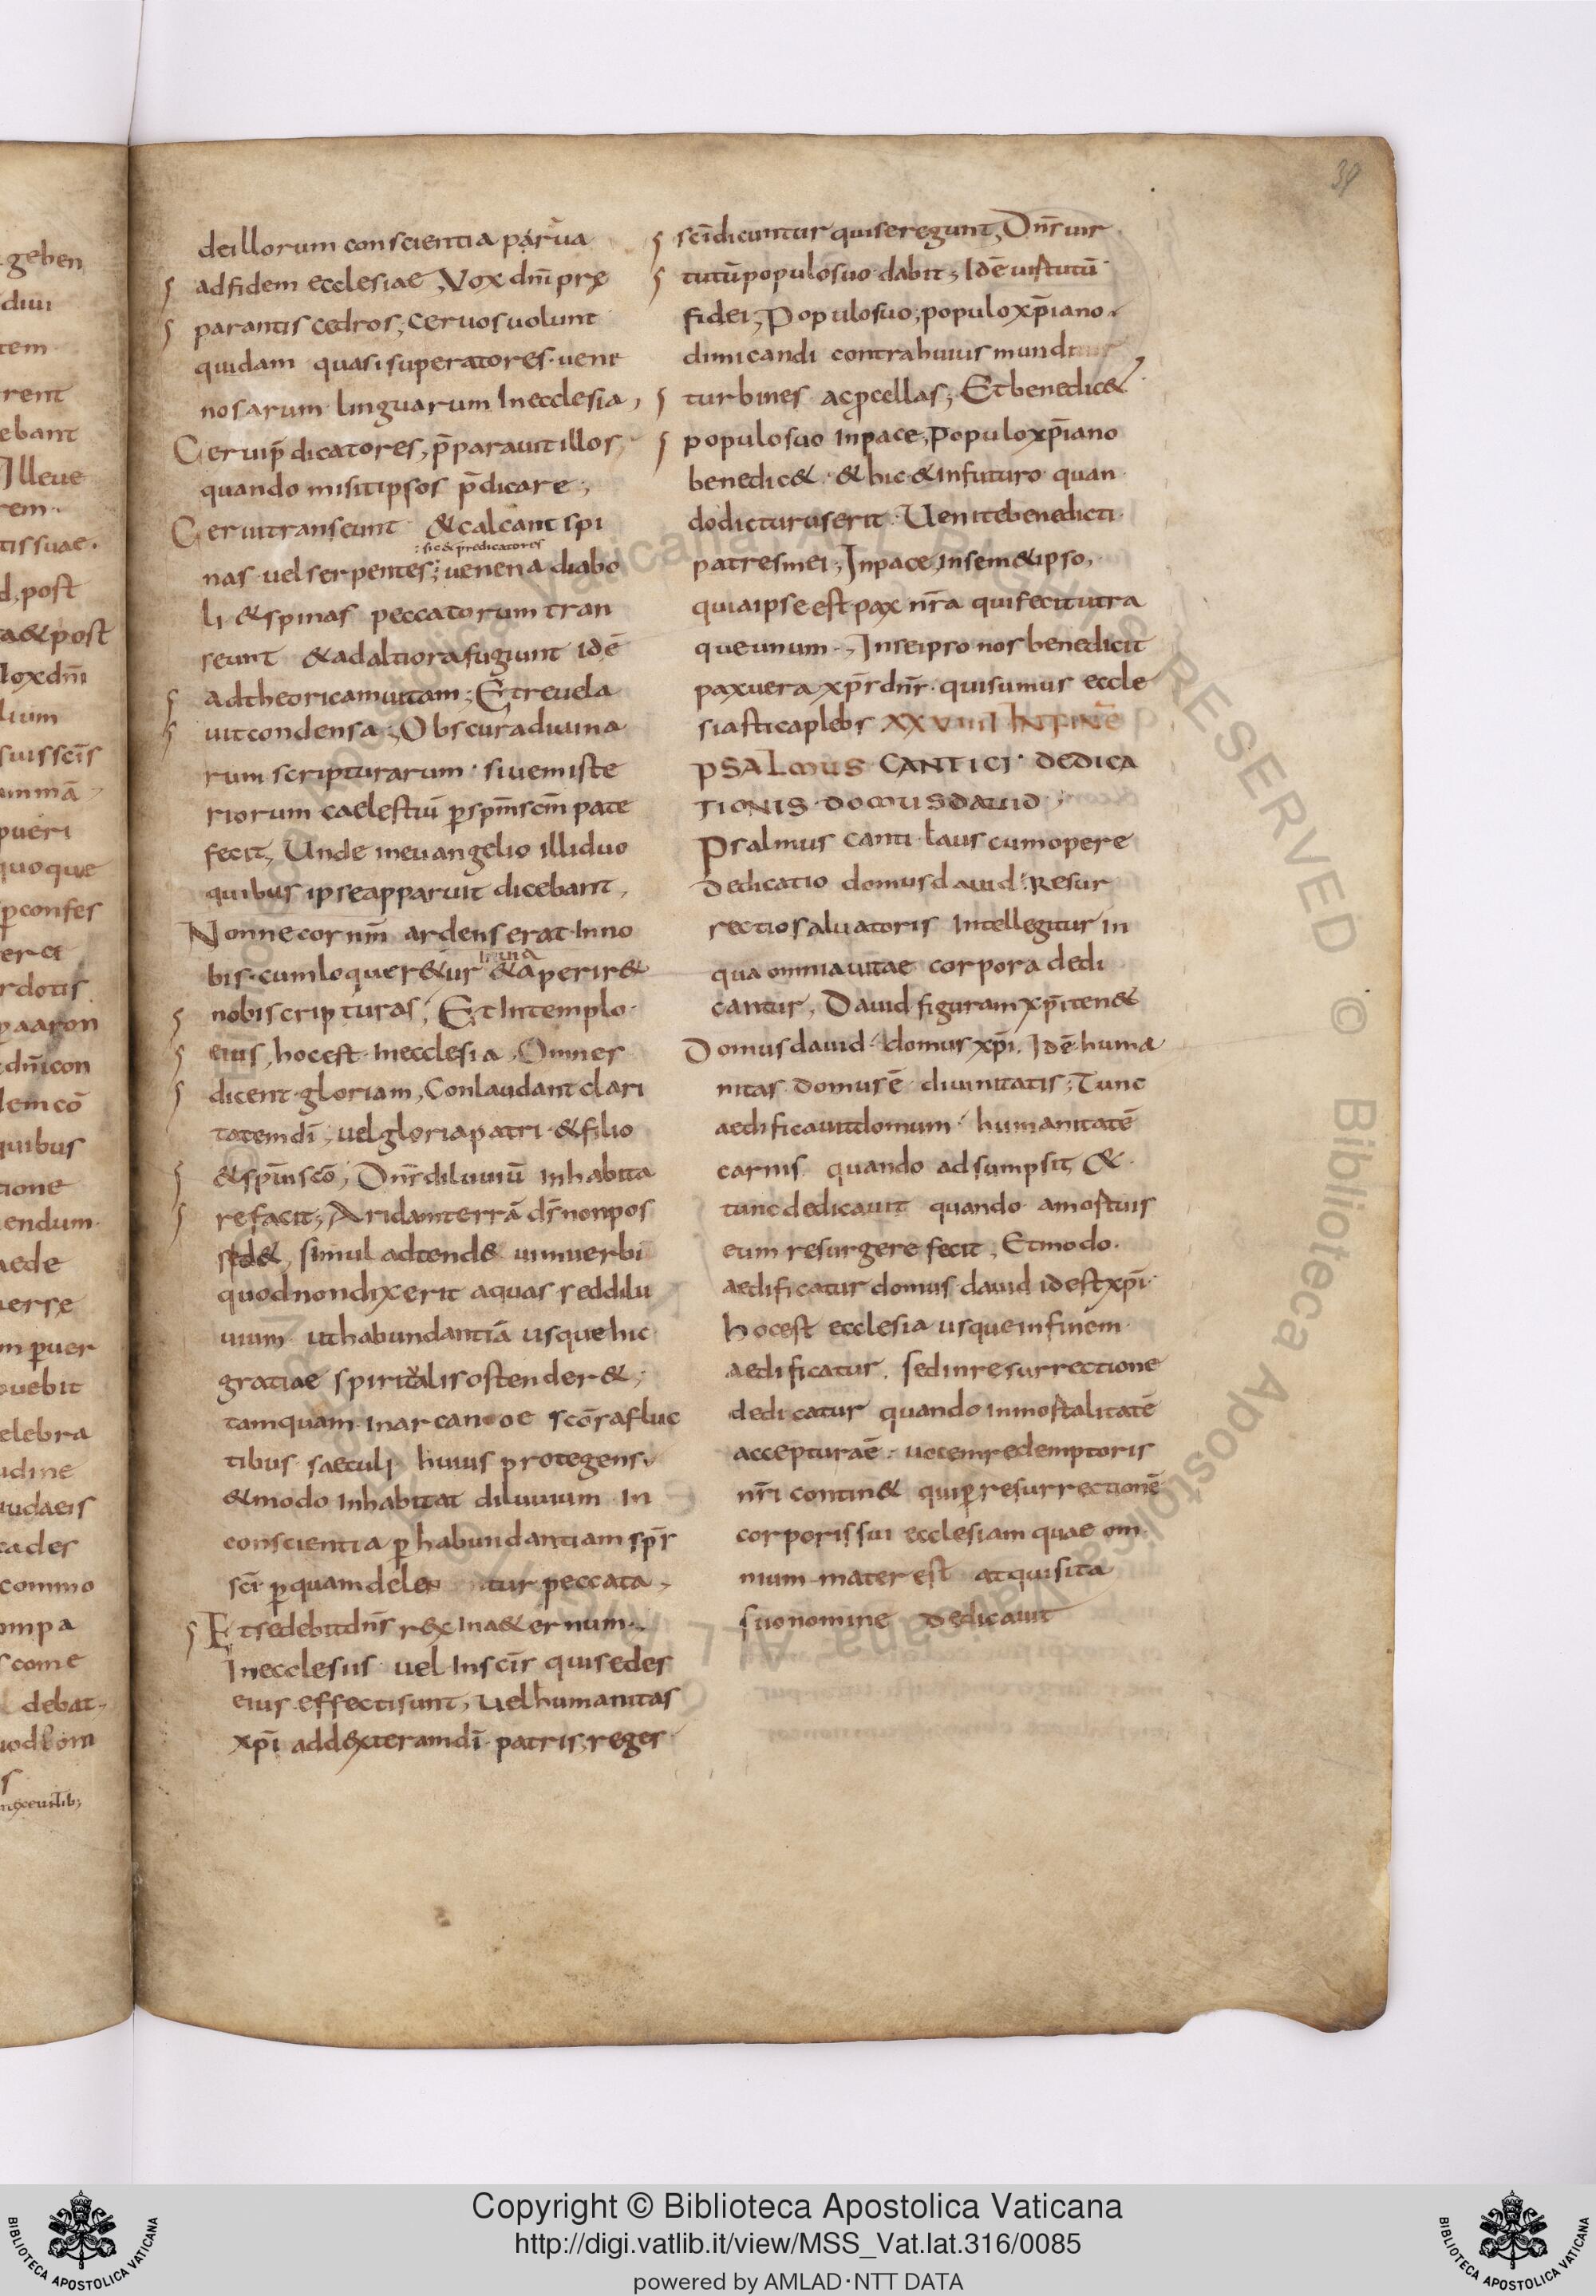 39
deillorum conscientia parua
adfidem ecclesiae, Vox dnī prę
parantis cedros; ceruos uolunt
quidam quasi superatores uene
nosarum linguarum Inecclesia,
Ceruip̄dicatores, p̄parauit illos,
quando misit ipsos p̄dicare;
Cerui transeunt & calcant spi
: sic & predicatores
nas uel serpentes; uenena diabo
li & spinas peccatorum tran
seunt & ad altiora fugiunt idē
ad theoricam uitam; Et reuela
uit condensa; Obscura diuina
rum scripturarum · siue miste
riorum caelestiū ꝑ spm̄ scm̄ pate
fecit, Unde in euangelio illi duo
quibus ipse apparuit dicebant,
Nonne cor nrm̄ ardens erat Inno
bis · cum loquer&ur & aperir&
nobis cripturas; Et Intemplo
eius, hoc est Inecclesia, Omnes
dicent gloriam, Conlaudant clari
tatem dī; uel gloria patri & filio
& spūi scō; Dns̄ diluuiū inhabita
re facit; Aridam terrā ds̄ non pos
sed&, simul adtend& uim uerbi
quod non dixerit aquas sed dilu
uium ut habundantiā usque hic
gratiae spiritalis ostender&;
tamquam in arca noe scōs a fluc
tibus saeculi huius protegens,
& modo Inhabitat diluuium In
conscientia ꝑ habundantiam sps̄
scī ꝑ quam delentur peccata,
Et sedebit dns̄ rex In a&ernum.
Inecclesiis uel In scīs qui sedes
eius effecti sunt, uel humanitas
xpī ad dexteram dī patris, reges
scī dicuntur qui se regunt, Dns̄ uir
tutū populo suo dabit; Idē uirtutū
fidei; Populo suo, populo xp̄iano
dimicandi contra huius mundi
turbines ac ꝓcellas; Et benedic&
populo suo Inpace, Populo xp̄iano
benedic& & hic & Infuturo quan
do dicturus erit Uenite benedicti
patres mei; Inpace, In sem&ipso,
quia ipse est pax nrā qui fecit utra
que unum, Inseipso nos benedicit
pax uera xps̄ dns̄ qui sumus eccle
siastica plebs XXVIIII IN FINĒ
PSALMUS CANTICI DEDICA
TIONIS DOMUS DAUID;
Psalmus canti laus cum opere
Dedicatio domus dauid Resur
rectio saluatoris Intellegitur in
qua omnia uitae corpora dedi
cantur, Dauid figuram xp̄i ten&
Domus dauid domus xpī, Idē huma
nitas domus ē diuinitatis; Tunc
aedificauit domum humanitatē
carnis quando adsumpsit, &
tunc dedicauit quando a mortuis
eum resurgere fecit, Et modo
aedificatur domus dauid id est xpī
hoc est ecclesia usque in finem
aedificatur, sed in resurrectione
dedicatur quando inmortalitatē
acceptura ē uocem redemptoris
nr̄i contin& qui ꝑ resurrectionē
corporis sui ecclesiam quae om
nium mater est atquisita
suo nomine dedicauit
Copyright © Biblioteca Apostolica Vaticana
http://digi.vatlib.it/view/MSS_Vat.lat.316/0085
powered by AMLAD·NTT DATA